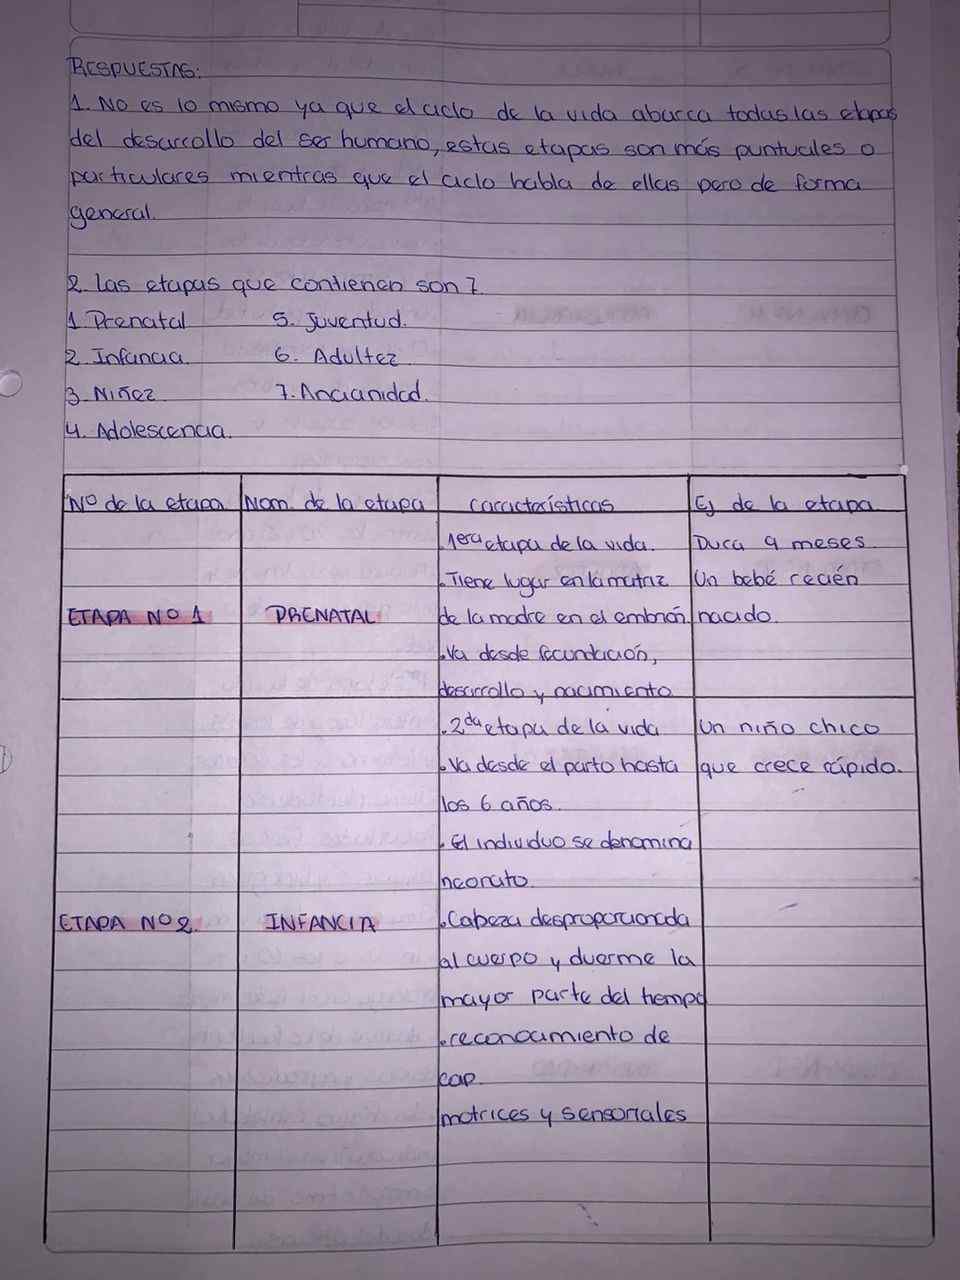 RESPUESTAS:
1. No es lo mismo ya que el ciclo de la vida abarca todas las etapas
del desarrollo del ser humano, estas etapas son más puntuales o
particulares mientras que el ciclo habla de ellas pero de forma
general.
2. Las etapas que contienen son 7.
1. Prenatal
5. Juventud.
2. Infancia.
6. Adultez.
3. Niñez
7. Ancianidad.
4. Adolescencia.
Nº de la etapa
Nom. de la etapa
Características
Ej de la etapa
ETAPA Nº 1
PRENATAL
1era etapa de la vida.
.Tiene lugar en la matriz
de la madre en el embrión
.Va desde fecundación,
desarrollo y nacimiento
Dura 9 meses.
Un bebé recién
nacido.
ETAPA Nº 2.
INFANCIA
.2da etapa de la vida
.Va desde el parto hasta
los 6 años.
.El individuo se denomina
neonato.
.Cabeza desproporcionada
al cuerpo y duerme la
mayor parte del tiempo
.reconocimiento de
cap.
motrices y sensoriales
Un niño chico
que crece rápido.